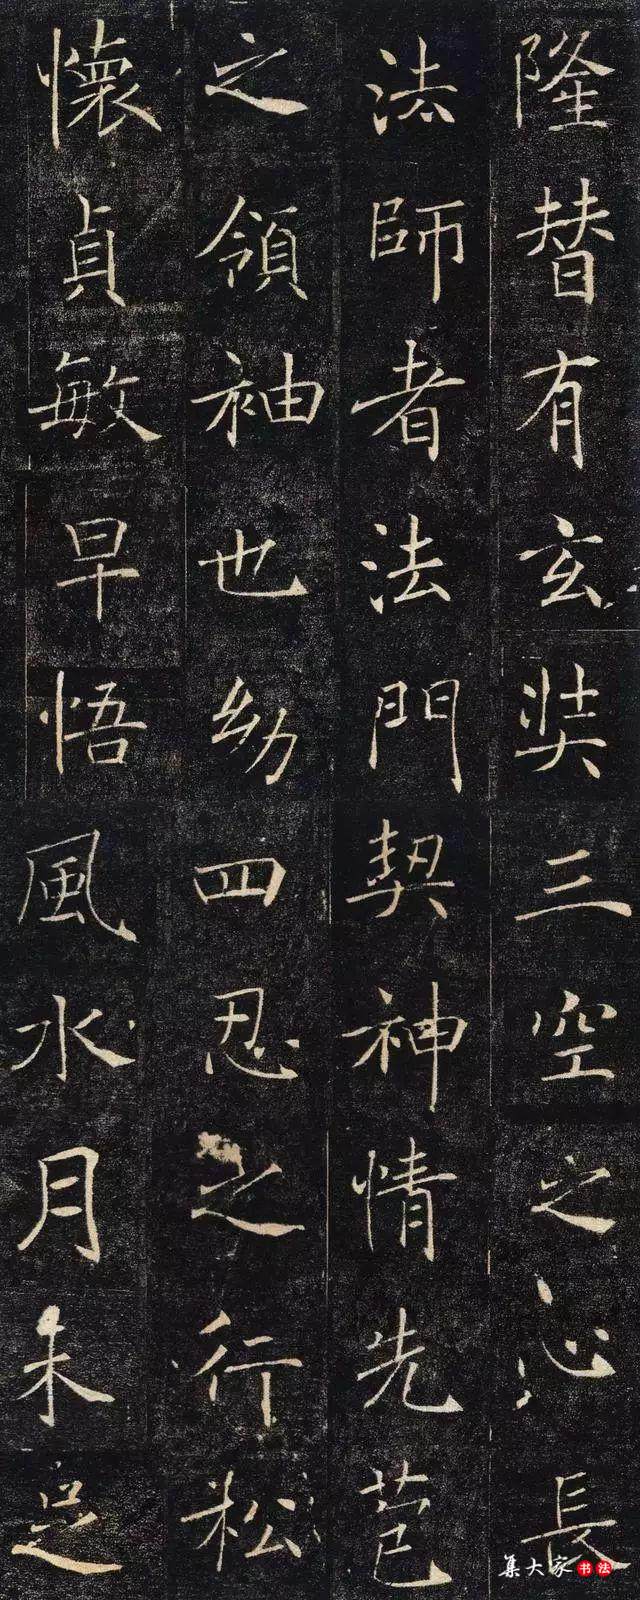 隆替有玄奘三空之心長
法師者法門契神情先苞
之領袖也幼四忍之行松
懷貞敏早悟風水月未足
集大家书法